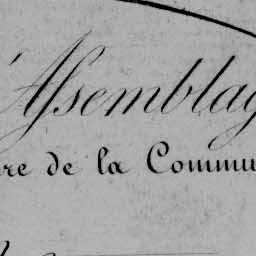 l'Assemblag
re de la Commu